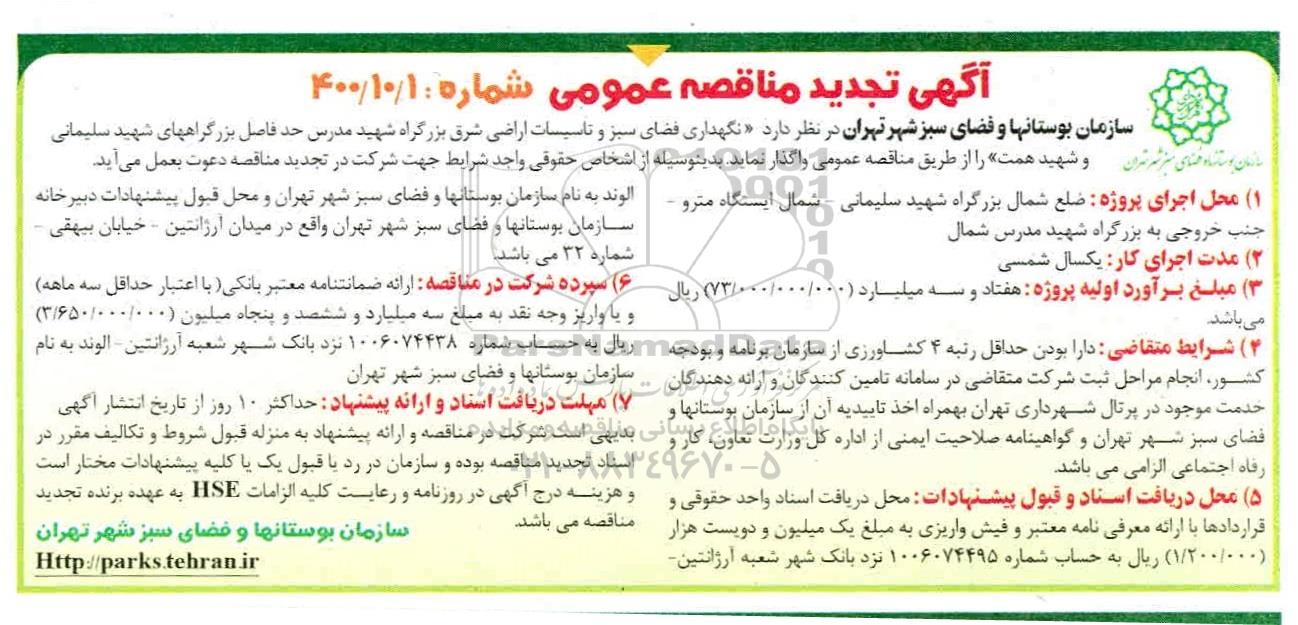 آگهی تجدید مناقصه عمومی شماره : ۴۰۰/۱۰/۱
سازمان بوستانها و فضای سبز شهر تهران در نظر دارد «نگهداری فضای سبز و تاسیسات اراضی شرق بزرگراه شهید مدرس حد فاصل بزرگراههای شهید سلیمانی
و شهید همت» را از طریق مناقصه عمومی واگذار نماید. بدینوسیله از اشخاص حقوقی واجد شرایط جهت شرکت در تجدید مناقصه دعوت بعمل می‌آید.
سازمان بوستانها و فضای سبز شهر تهران
۱) محل اجرای پروژه : ضلع شمال بزرگراه شهید سلیمانی - شمال ایستگاه مترو -
جنب خروجی به بزرگراه شهید مدرس شمال
۲) مدت اجرای کار : یکسال شمسی
۳) مبلغ برآورد اولیه پروژه : هفتاد و سه میلیارد (۷۳/۰۰۰/۰۰۰/۰۰۰) ریال
می‌باشد.
۴) شرایط متقاضی : دارا بودن حداقل رتبه ۴ کشاورزی از سازمان برنامه و بودجه
کشور، انجام مراحل ثبت شرکت متقاضی در سامانه تامین کنندگان و ارائه دهندگان
خدمت موجود در پرتال شهرداری تهران بهمراه اخذ تاییدیه آن از سازمان بوستانها و
فضای سبز شهر تهران و گواهینامه صلاحیت ایمنی از اداره کل وزارت تعاون، کار و
رفاه اجتماعی الزامی می باشد.
۵) محل دریافت اسناد و قبول پیشنهادات : محل دریافت اسناد واحد حقوقی و
قراردادها با ارائه معرفی نامه معتبر و فیش واریزی به مبلغ یک میلیون و دویست هزار
(۱/۲۰۰/۰۰۰) ریال به حساب شماره ۱۰۰۶۰۷۴۴۹۵ نزد بانک شهر شعبه آرژانتین-
الوند به نام سازمان بوستانها و فضای سبز شهر تهران و محل قبول پیشنهادات دبیرخانه
سازمان بوستانها و فضای سبز شهر تهران واقع در میدان آرژانتین - خیابان بیهقی -
شماره ۳۲ می باشد.
۶) سپرده شرکت در مناقصه : ارائه ضمانتنامه معتبر بانکی( با اعتبار حداقل سه ماهه)
و یا واریز وجه نقد به مبلغ سه میلیارد و ششصد و پنجاه میلیون (۳/۶۵۰/۰۰۰/۰۰۰)
ریال به حساب شماره ۱۰۰۶۰۷۴۴۳۸ نزد بانک شهر شعبه آرژانتین- الوند به نام
سازمان بوستانها و فضای سبز شهر تهران
۷) مهلت دریافت اسناد و ارائه پیشنهاد : حداکثر ۱۰ روز از تاریخ انتشار آگهی
بدیهی است شرکت در مناقصه و ارائه پیشنهاد به منزله قبول شروط و تکالیف مقرر در
اسناد تجدید مناقصه بوده و سازمان در رد یا قبول یک یا کلیه پیشنهادات مختار است
و هزینه درج آگهی در روزنامه و رعایت کلیه الزامات HSE به عهده برنده تجدید
مناقصه می باشد.
سازمان بوستانها و فضای سبز شهر تهران
Http://parks.tehran.ir
ParsNamadData
پایگاه اطلاع رسانی مناقصه و مزایده
۰۲۱-۸۸۳۴۹۶۷۰-۵